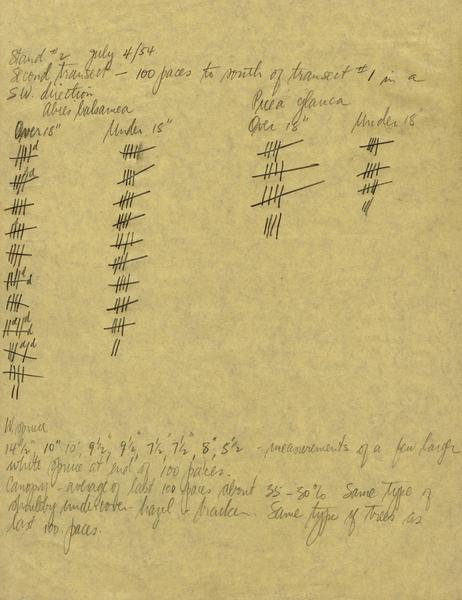 Stand #2 July 4/54
Second transect — 100 paces to south of transect #1 in a
SW. direction
Abies balsamea Picea glauca
Over 18" Under 18" Over 18" Under 18"
W. spruce
14½", 10" 10", 9½", 9½", 7½", 7½", 8", 5½ - measurements of a few larger
white spruce at end of 100 paces.
Canopy - average of last 100 paces about 35-30% Same type of
shrubby undercover - hazel & bracken. Same type of trees as
last 100 paces.